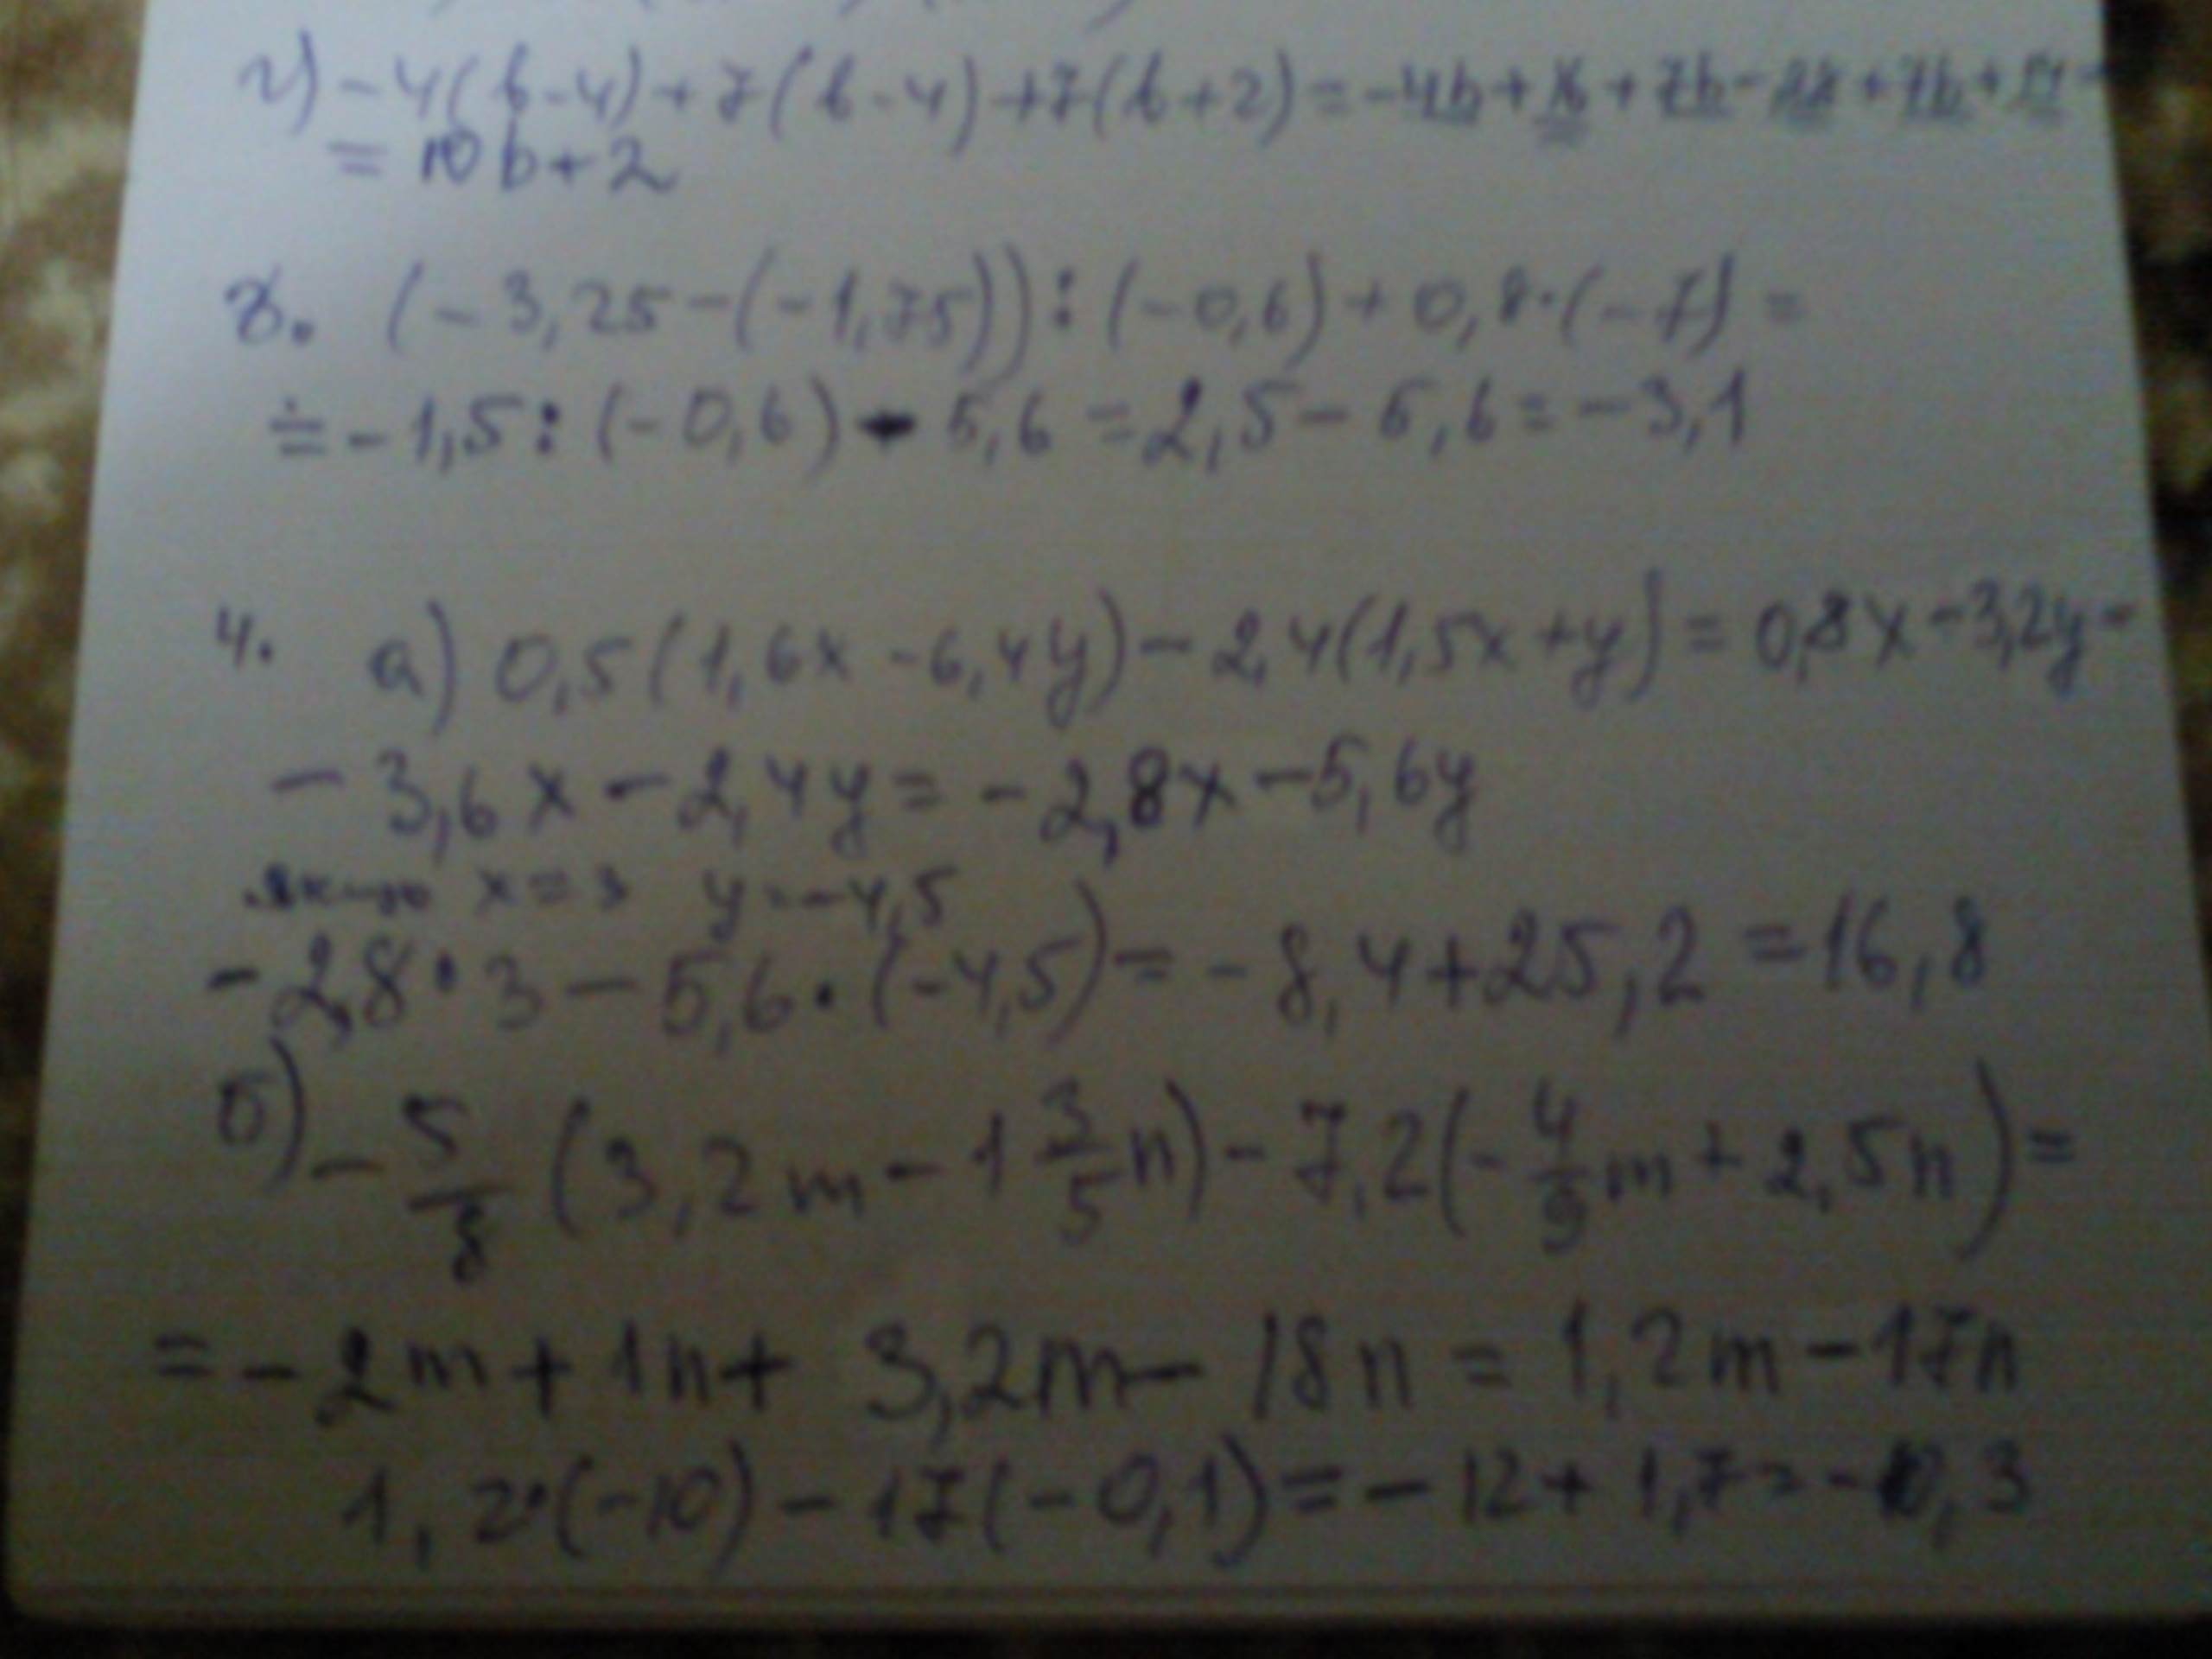 г) -4(b-4)+7(b-4)+7(b+2)=-4b+16+7b-28+7b+14
= 10b+2
(-3,25-(-1,75)):(-0,6)+0,8·(-7)=
=-1,5:(-0,6)-5,6=2,5-5,6=-3,1
4. а) 0,5(1,6x-6,4y)-2,4(1,5x+y)=0,8x-3,2y-
-3,6x-2,4y=-2,8x-5,6y
якщо x=3 y=-4,5
-2,8·3-5,6·(-4,5)=-8,4+25,2=16,8
б) -5/8(3,2m-1 3/5n)-7,2(-4/9m+2,5n)=
=-2m+1n+3,2m-18n=1,2m-17n
1,2·(-10)-17(-0,1)=-12+1,7=-10,3